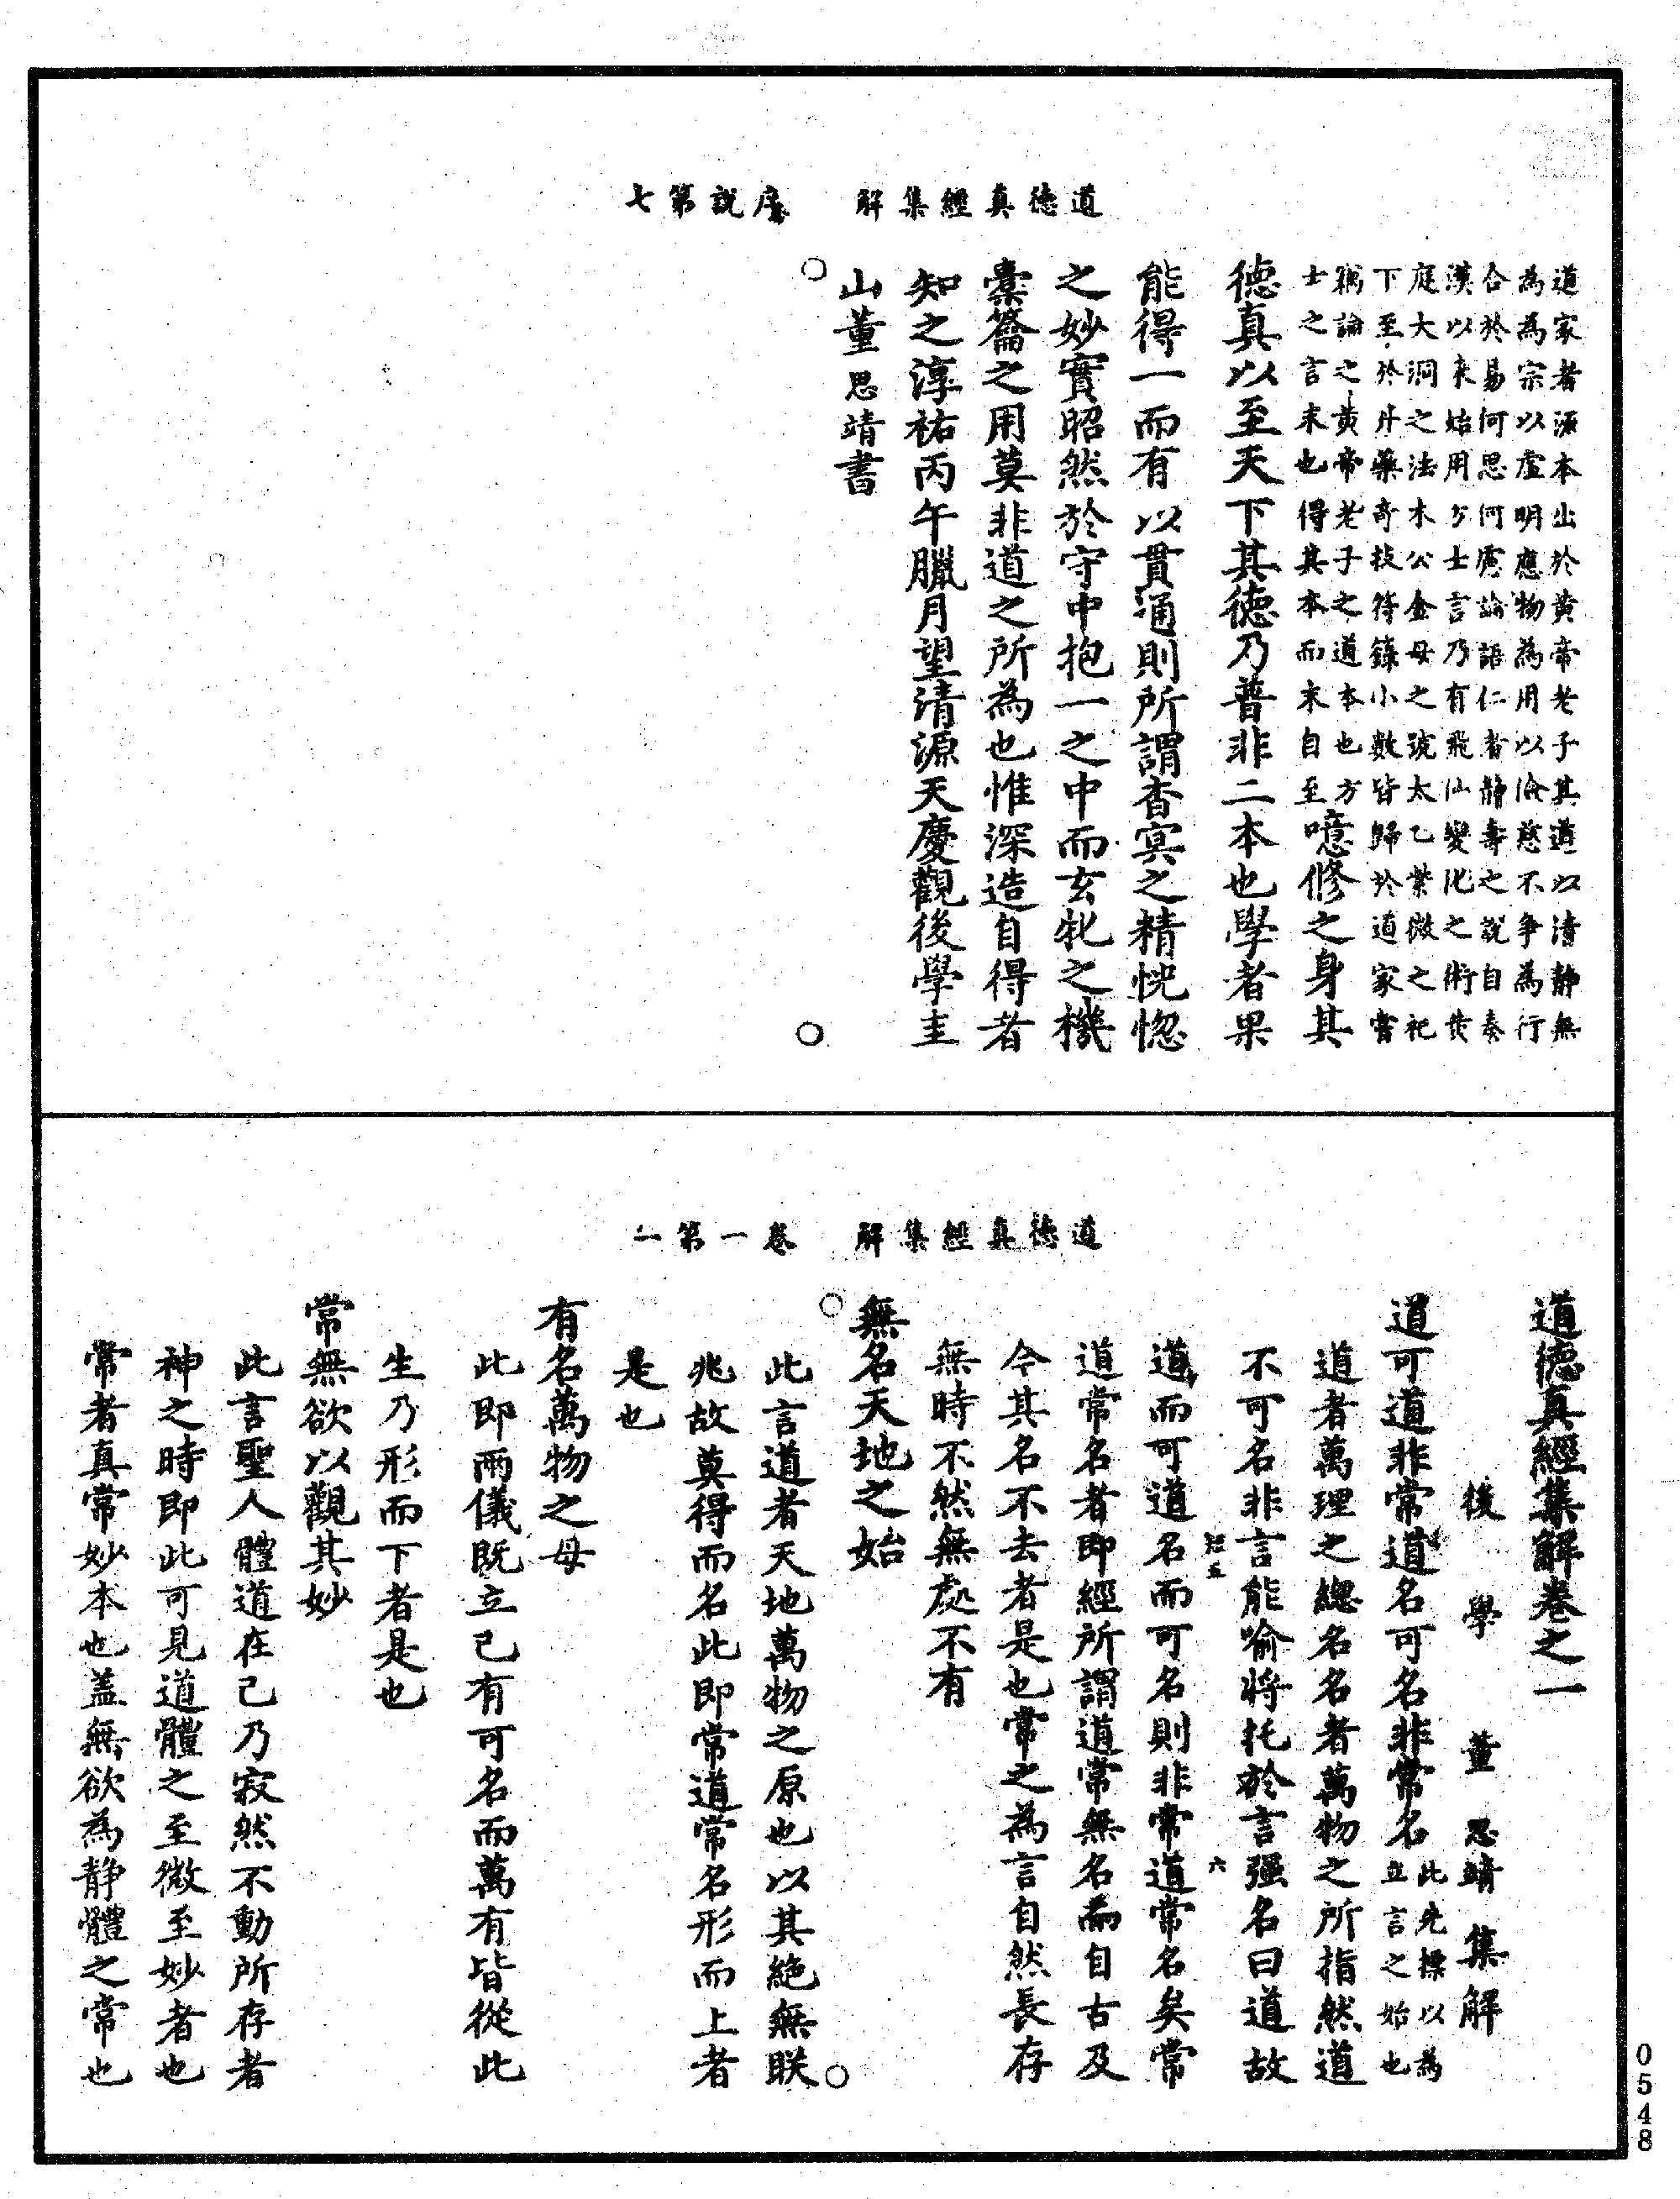 道德真經集解　序說第七
道家者源本出於黃帝老子其道以清靜無
為為宗以虛明應物為用以儉慈不爭為行
合於易何思何慮論語仁者靜壽之說自秦
漢以來始用方士言乃有飛仙變化之術黃
庭大洞之法木公金母之號太乙紫微之祀
下至於丹藥奇技符籙小數皆歸於道家嘗
竊論之黃帝老子之道本也方
士之言末也得其本而末自至
噫修之身其
德真以至天下其德乃普非二本也學者果
能得一而有以貫通則所謂杳冥之精恍惚
之妙實昭然於守中抱一之中而玄牝之機
橐籥之用莫非道之所為也惟深造自得者
知之淳祐丙午臘月望清源天慶觀後學圭
山董思靖書
道德真經集解　卷一第一
道德真經集解卷之一
後學董思靖集解
道可道非常道名可名非常名
此先標以為
立言之始也
道者萬理之總名名者萬物之所指然道
不可名非言能喻將托於言强名曰道故
短五　六
道而可道名而可名則非常道常名矣常
道常名者即經所謂道常無名而自古及
今其名不去者是也常之為言自然長存
無時不然無處不有
無名天地之始
此言道者天地萬物之原也以其絕無眹
兆故莫得而名此即常道常名形而上者
是也
有名萬物之母
此即兩儀既立已有可名而萬有皆從此
生乃形而下者是也
常無欲以觀其妙
此言聖人體道在己乃寂然不動所存者
神之時即此可見道體之至微至妙者也
常者真常妙本也蓋無欲為靜體之常也
0548